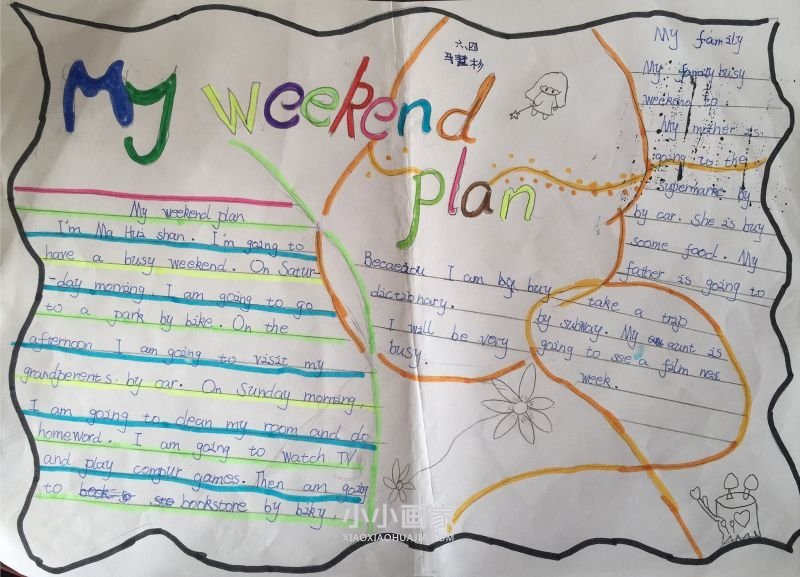 My weekend plan
六.四
马慧杉
My weekend plan
I'm Ma Hui shan. I'm going to
have a busy weekend. On Satur-
-day morning, I am going to go
to a park by bike. On the
afternoon I am going to visit my
grandperents. by car. On Sunday morning,
I am going to clean my room and do
homeword. I am going to watch TV
and play compur games. Then am going
to bookstore by biky,
I am buy
dictionary.
I will be very
busy.
My family
My busy
weekend to.
My mother is
going to the
supermarke by
by car. She is buy
soome food. My
father is going to
take a trip
by subway. My aunt is
going to see a film nex
week.
小小画家
XIAOXIAOHUAJIA.COM